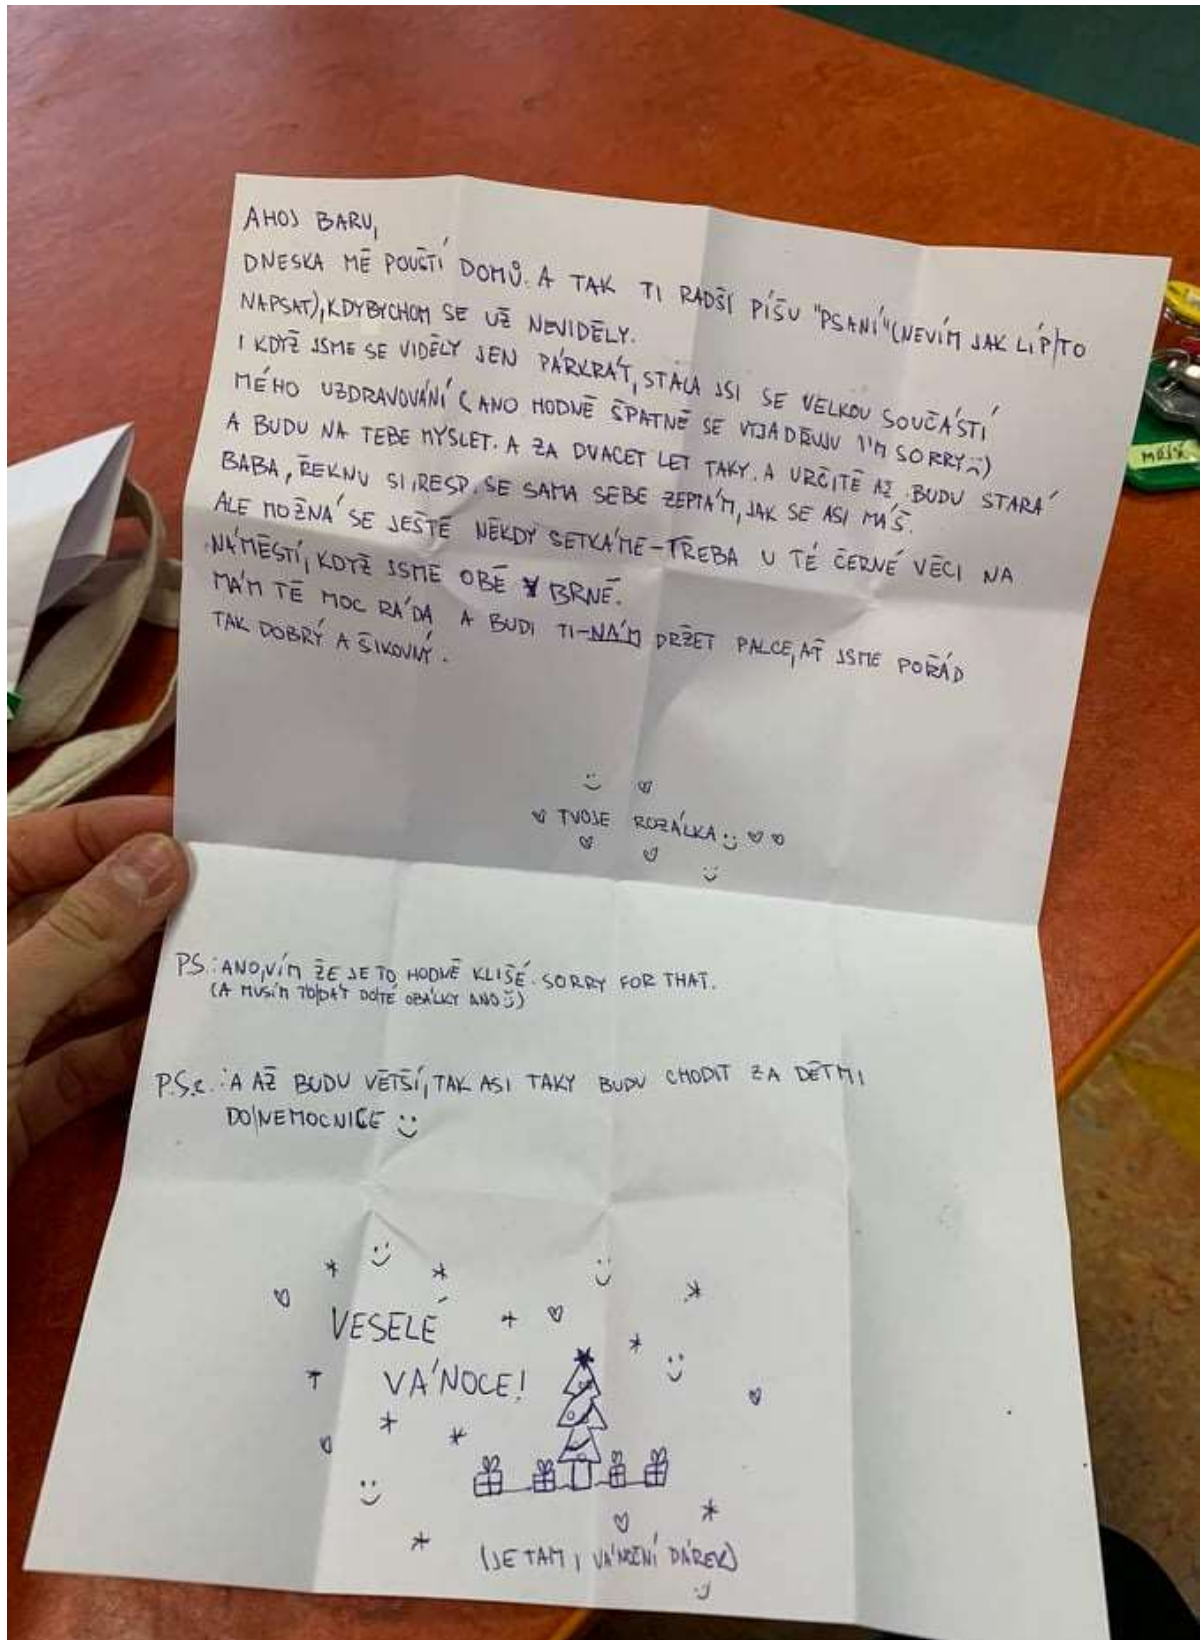 AHOJ BARU,
DNESKA MĚ POUŠTÍ DOMŮ. A TAK TI RADŠI PÍŠU "PSANÍ" (NEVÍM JAK LÍP|TO
NAPSAT), KDYBYCHOM SE UŽ NEVIDĚLY.
I KDYŽ JSME SE VIDĚLY JEN PÁRKRÁT, STALA JSI SE VELKOU SOUČÁSTÍ
MÉHO UZDRAVOVÁNÍ (ANO HODNĚ ŠPATNĚ SE VYJADŘUJU I'M SORRY :))
A BUDU NA TEBE MYSLET. A ZA DVACET LET TAKY. A URČITĚ AŽ BUDU STARÁ
BABA, ŘEKNU SI, RESP. SE SAMA SEBE ZEPTÁM, JAK SE ASI MÁŠ.
ALE MOŽNÁ SE JEŠTĚ NĚKDY SETKÁME - TŘEBA U TÉ ČERNÉ VĚCI NA
NÁMĚSTÍ, KDYŽ JSME OBĚ V BRNĚ.
MÁM TĚ MOC RÁDA A BUDI TI-NÁM DRŽET PALCE, AŤ JSME POŘÁD
TAK DOBRÝ A ŠIKOVNÝ.
TVOJE ROZÁLKA :)
PS.: ANO, VÍM ŽE JE TO HODNĚ KLIŠÉ. SORRY FOR THAT.
(A MUSÍM TO|DÁT DO|TÉ OBÁLKY ANO :))
P.S.2.: A AŽ BUDU VĚTŠÍ, TAK ASI TAKY BUDU CHODIT ZA DĚTMI
DO|NEMOCNICE :)
VESELÉ
VÁNOCE!
(JE TAM I VÁNOČNÍ DÁREK)
:)